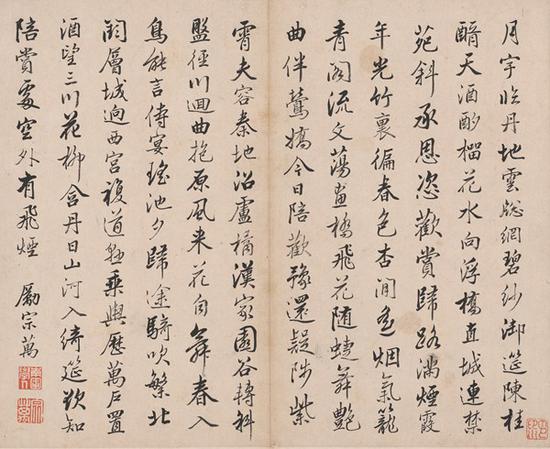 月宇臨丹地雲牕網碧紗御筵陳桂
醑天酒酌榴花水向浮橋直城連禁
苑斜承恩恣歡賞歸路滿煙霞
年光竹裏徧春色杏間遙烟氣籠
青閣流文蕩畫橋飛花隨蜨舞艷
曲伴鶯嬌今日陪歡豫還疑陟紫
霄夫容秦地沼盧橘漢家園谷轉斜
盤徑川迴曲抱原風来花自舞春入
鳥能言侍宴瑤池夕歸途騎吹繁北
闕層城迥西宮複道懸乘輿歷萬戶置
酒望三川花柳含丹日山河入綺筵欲知
陪賞處空外有飛煙 勵宗萬